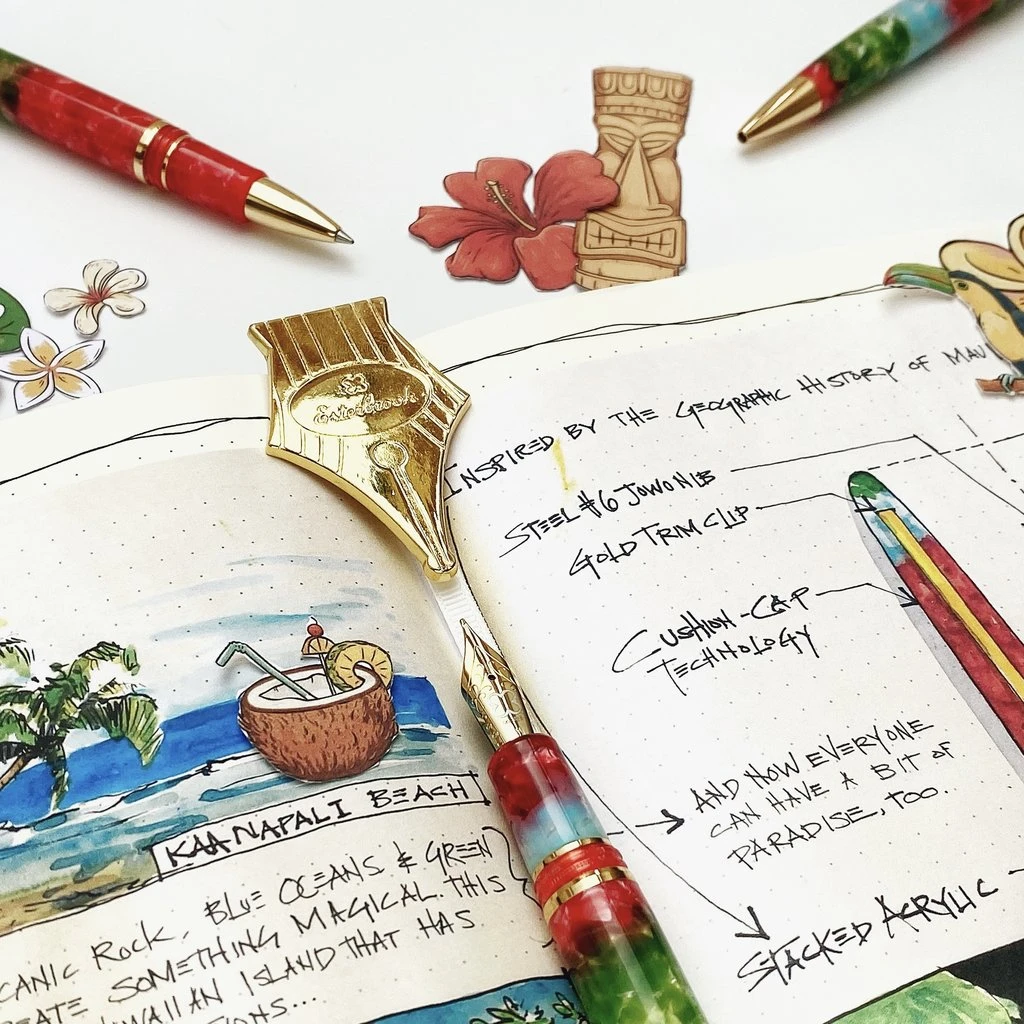 Esterbrook
INSPIRED BY THE GEOGRAPHIC HISTORY OF MAU
STEEL #6 JOWO NIB
GOLD TRIM CLIP
CUSHION-CAP
TECHNOLOGY
AND NOW EVERYONE
CAN HAVE A BIT OF
PARADISE, TOO.
STACKED ACRYLIC
KAANAPALI BEACH
CANIC ROCK, BLUE OCEANS & GREEN
EATE SOMETHING MAGICAL. THIS
WAIIAN ISLAND THAT HAS
IONS...